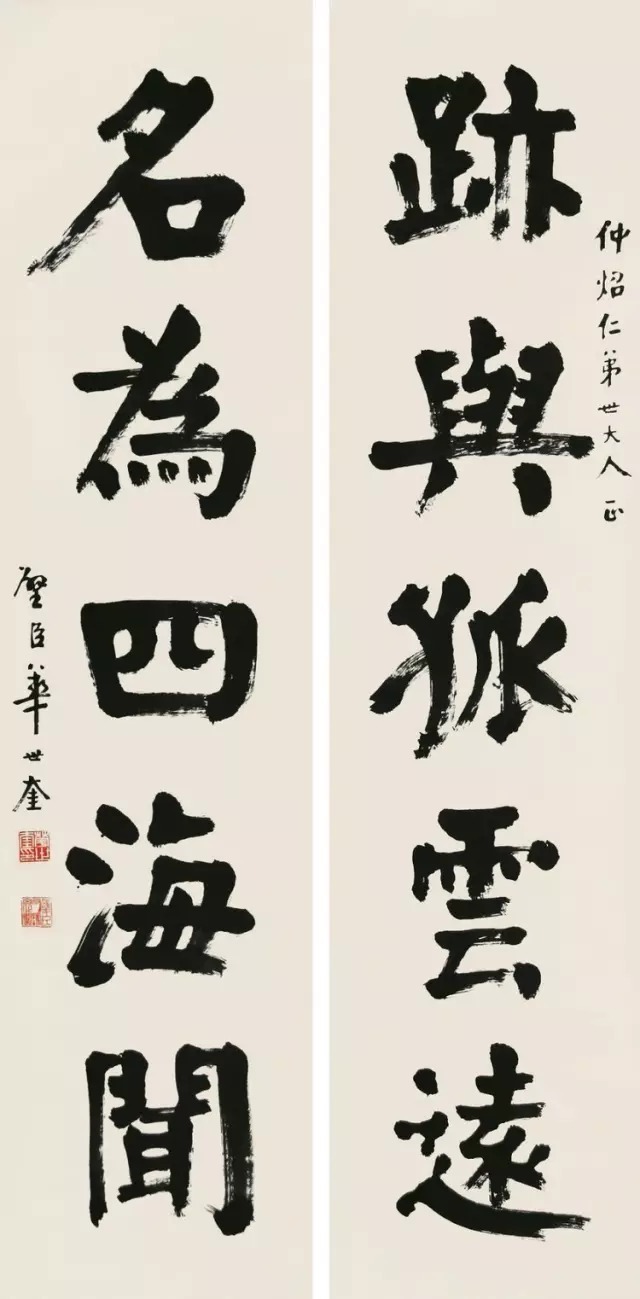 仲炤仁弟世大人 正
跡與孤雲遠
名為四海聞
璧臣華世奎